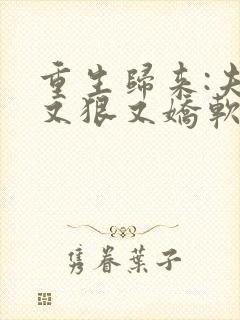 重生歸來:夫
又狠又嬌軟
雋眷葉子